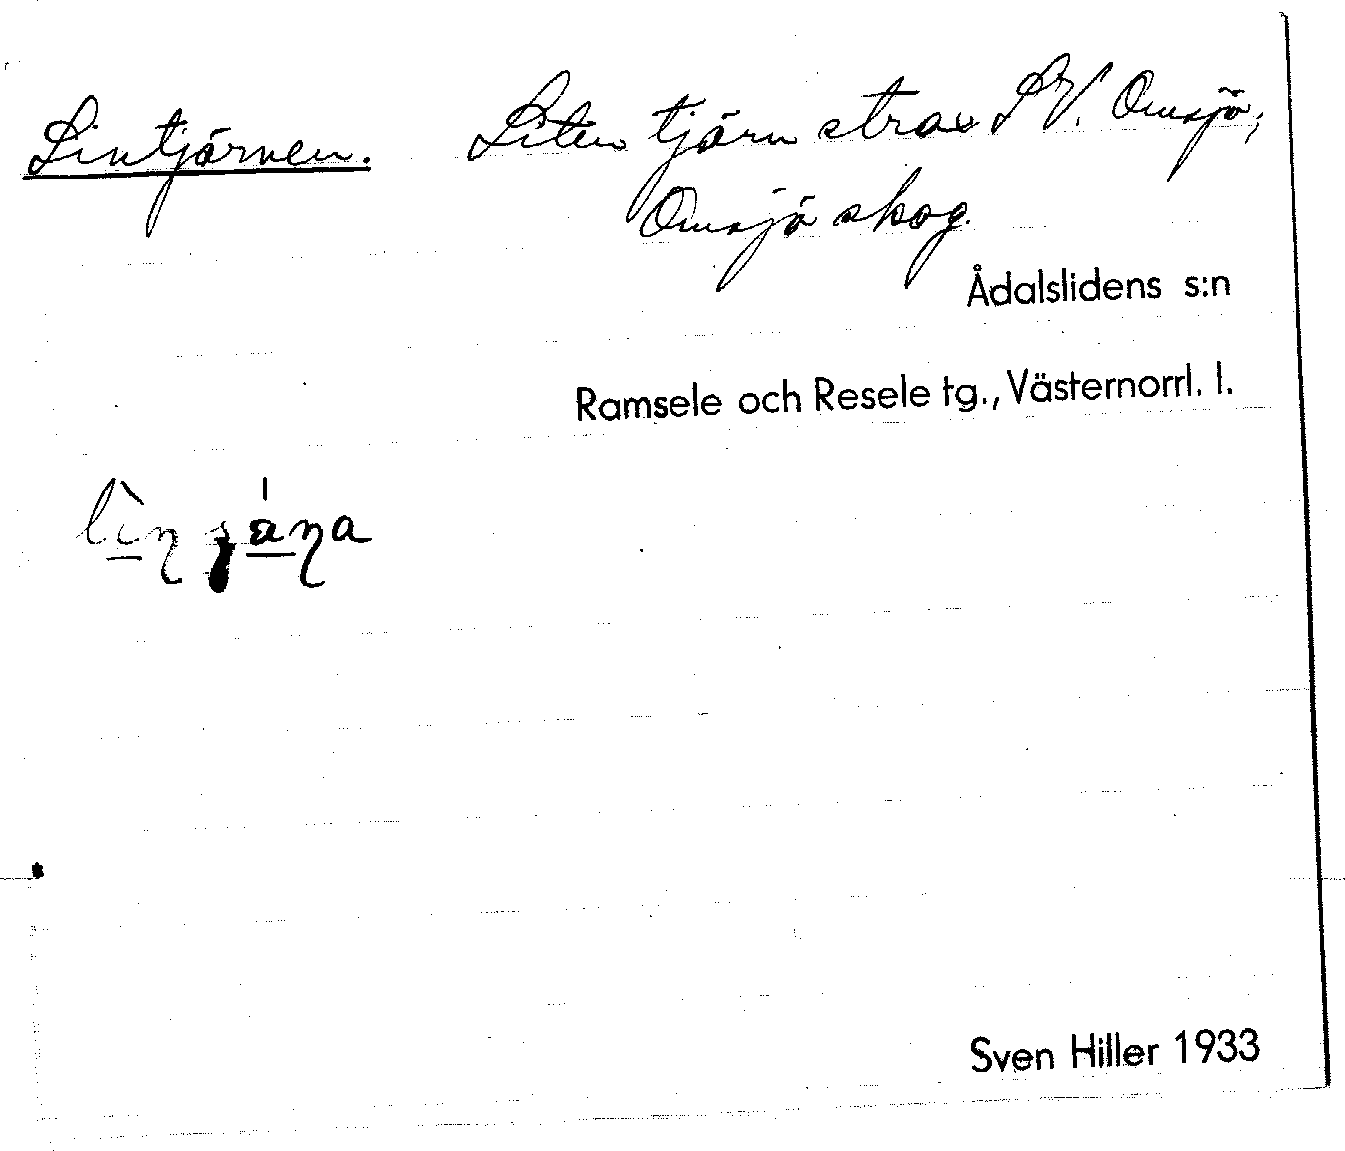 Lintjärnen. Liten tjärn strax SV. Omsjö;
Omsjö skog.
Ådalslidens s:n
Ramsele och Resele tg., Västernorrl. l.
Sven Hiller 1933